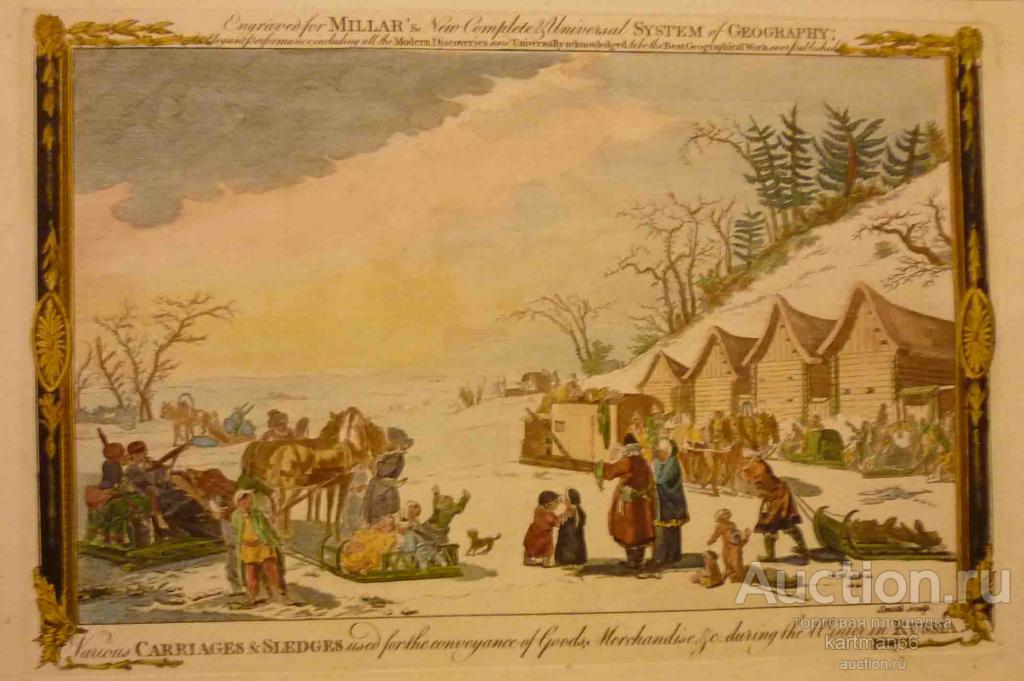 Engraved for MILLAR's New Complete & Universal SYSTEM of GEOGRAPHY;
Elegant Performance including all the Modern Discoveries and Universally acknowledged to be the Best Geographical Work ever published
Smith sculp
Various CARRIAGES & SLEDGES used for the conveyance of Goods, Merchandise, &c. during the Winter in RUSSIA
Auction.ru
торговая площадка
kartman66
auction.ru